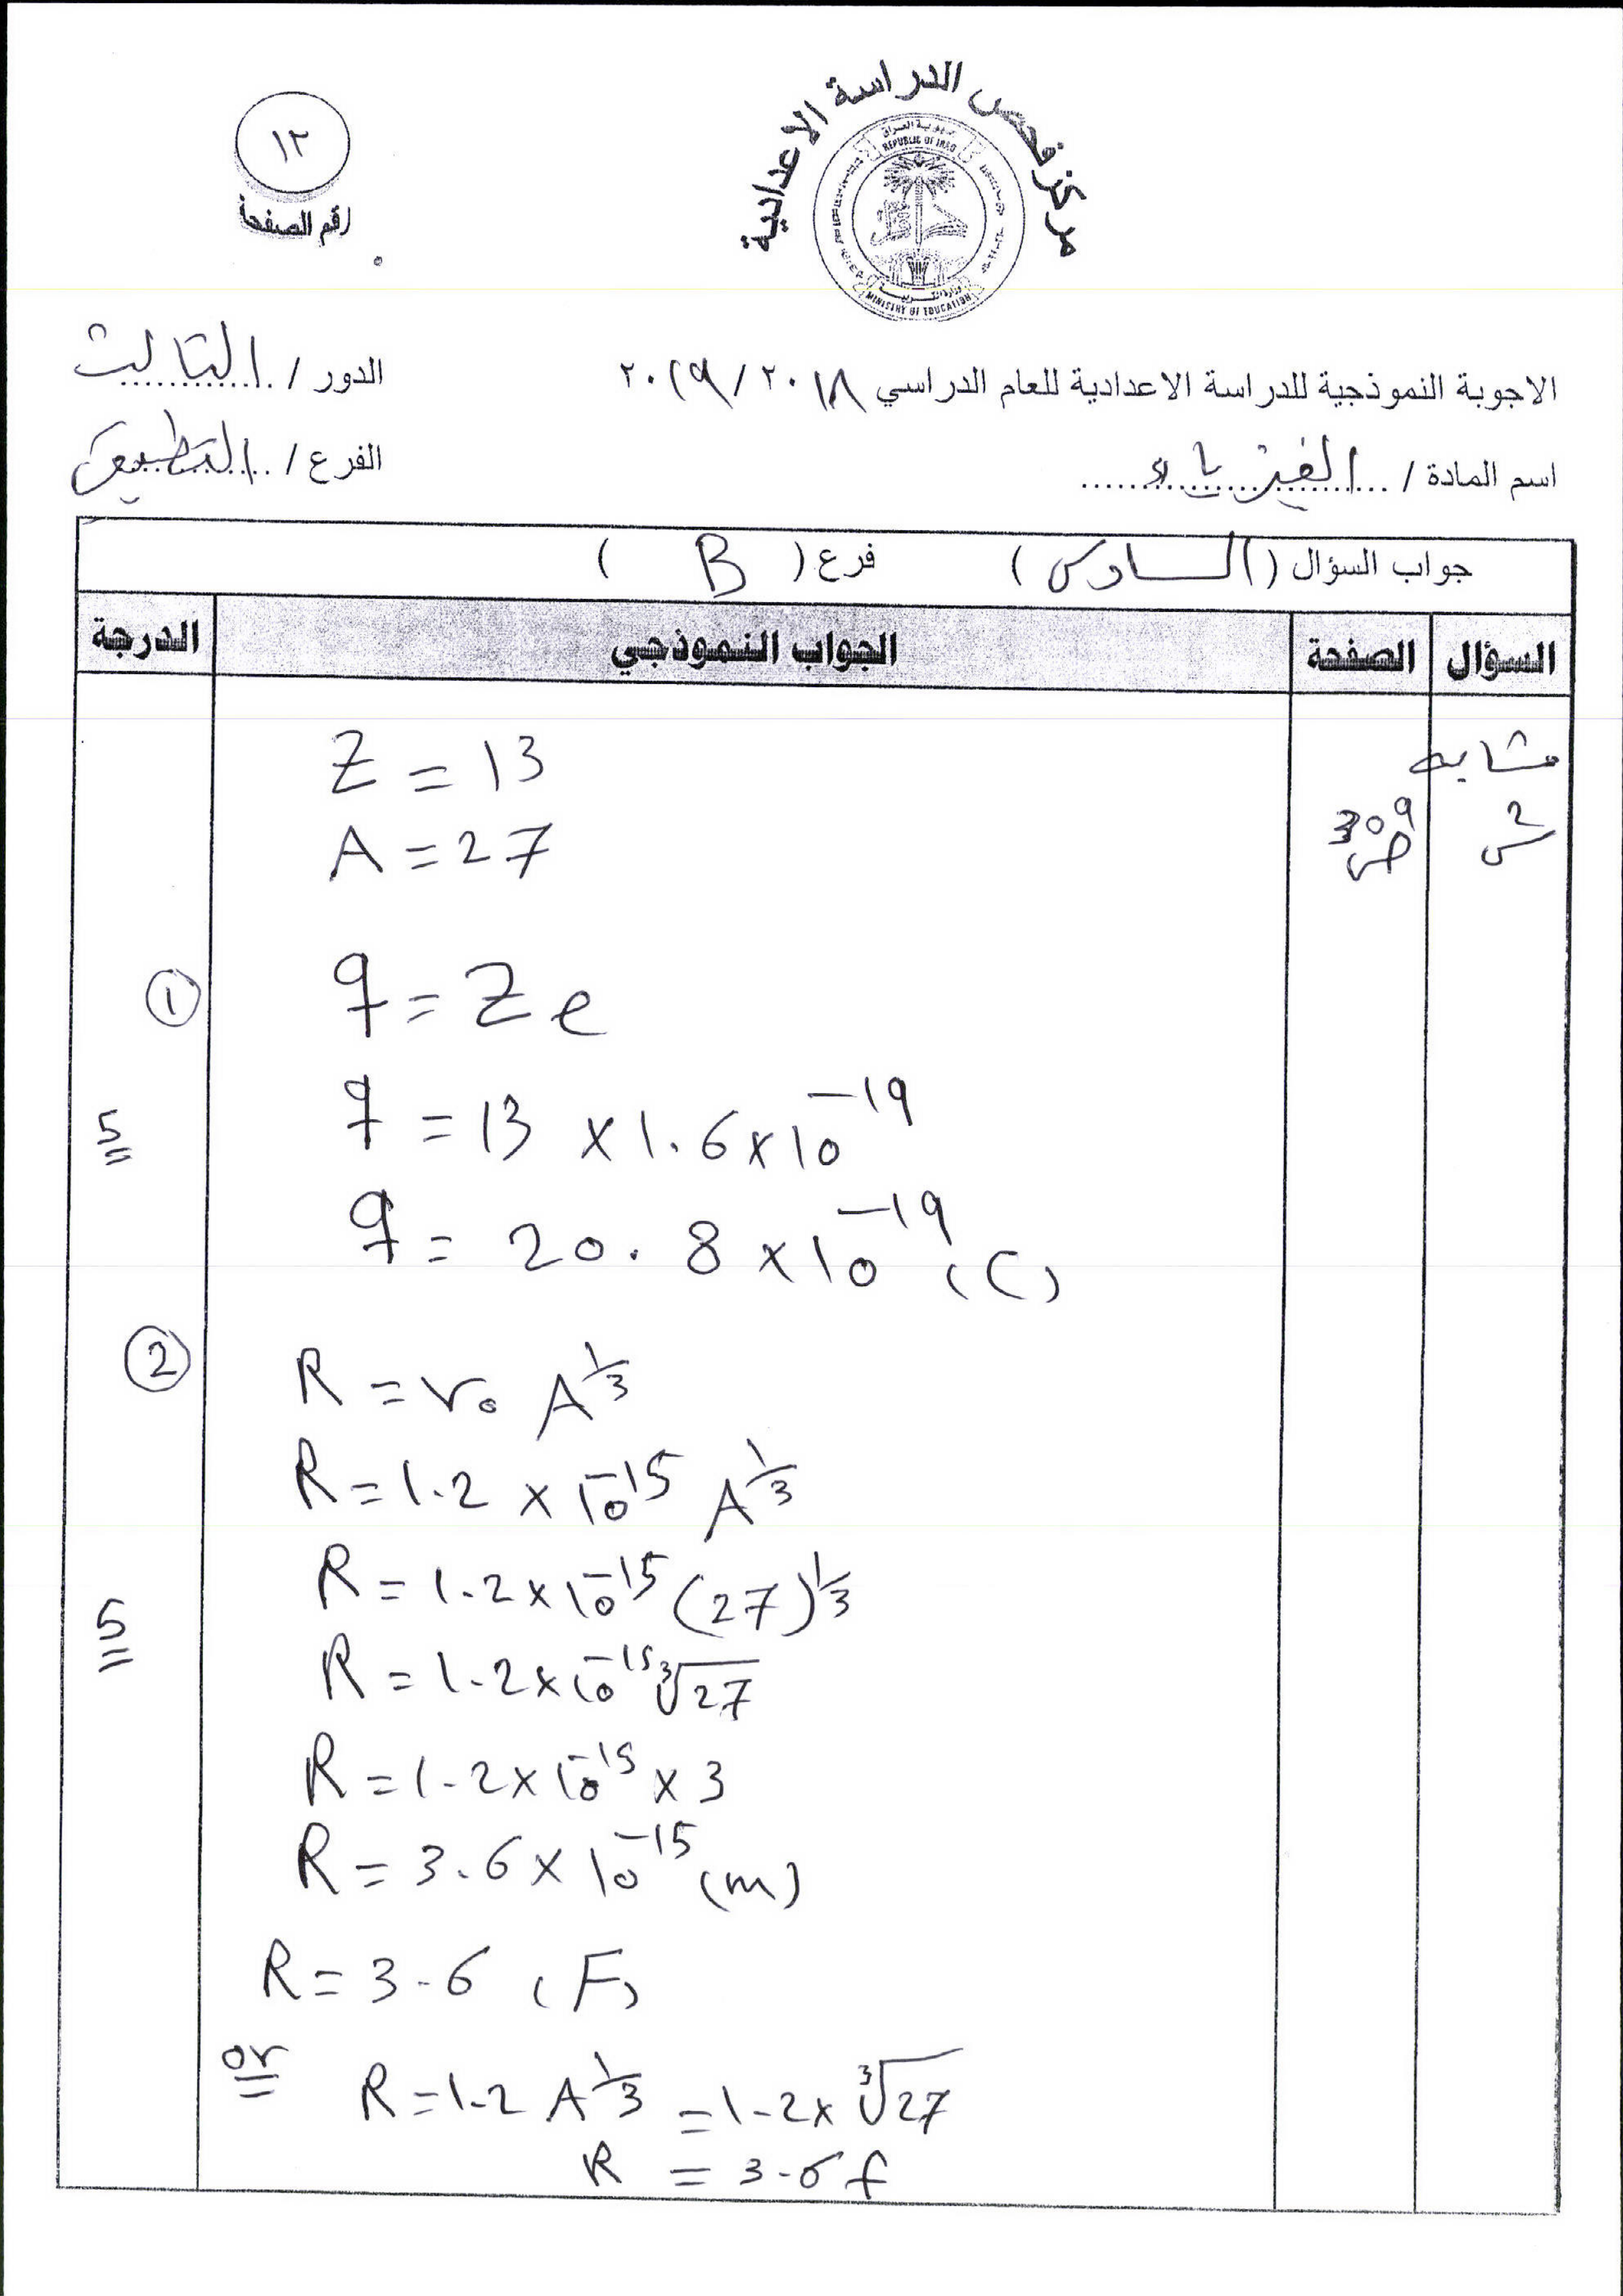 مركز فحص الدراسة الاعدادية
جمهورية العراق
REPUBLIC OF IRAQ
MINISTRY OF EDUCATION
١٢
رقم الصفحة
الاجوبة النموذجية للدراسة الاعدادية للعام الدراسي ٢٠١٨ / ٢٠١٩
الدور / الثالث
اسم المادة / الفيزياء
الفرع / التطبيقي
جواب السؤال ( السادس ) فرع ( B )
السؤال الصفحة الجواب النموذجي الدرجة
مشابه
س 2 ص 309
Z = 13
A = 27
① q = Z e
q = 13 × 1.6 × 10^-19
5
q = 20.8 × 10^-19 (C)
② R = r₀ A^1/3
R = 1.2 × 10^-15 A^1/3
R = 1.2 × 10^-15 (27)^1/3
5
R = 1.2 × 10^-15 ∛27
R = 1.2 × 10^-15 × 3
R = 3.6 × 10^-15 (m)
R = 3.6 (F)
or R = 1.2 A^1/3 = 1.2 × ∛27
R = 3.6 f